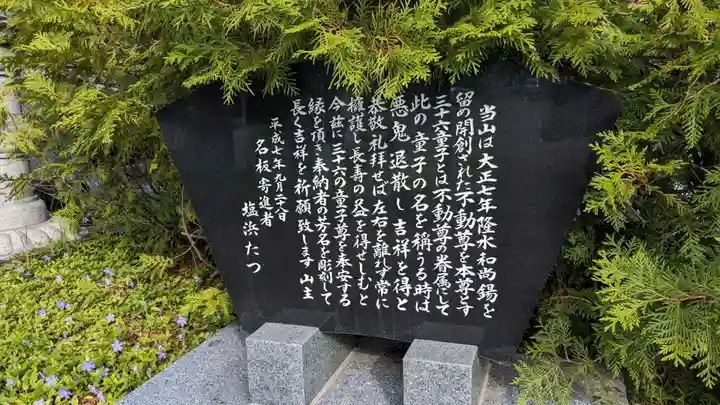 当山は大正七年隆水和尚錫を
留の開創された不動尊を本尊とす
三十六童子とは不動尊の眷属にして
此の童子の名を稱うる時は
悪鬼退散し吉祥を得と
恭敬礼拜せば左右を離れず常に
擁護し長寿の益を得せしむと
今茲に三十六の童子尊を奉安する
縁を頂き奉納者の芳名を彫刻して
長く吉祥を祈願致します 山主
平成七年九月二十八日
名板寄進者
塩浜たつ